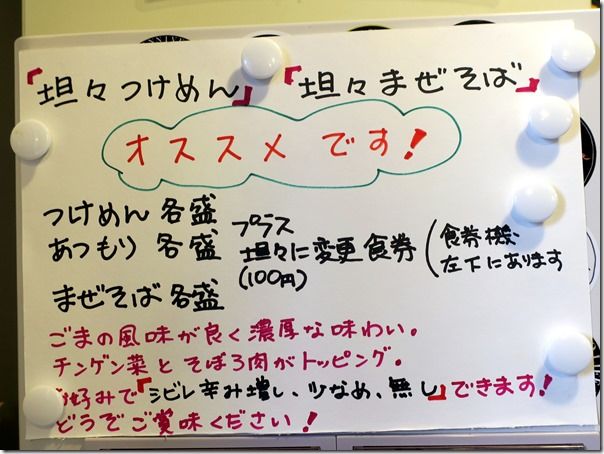 『坦々つけめん』『坦々まぜそば』
オススメです!
つけめん各盛
あつもり各盛
まぜそば各盛
プラス
坦々に変更食券
(100円)
(食券機
左下にあります
ごまの風味が良く濃厚な味わい。
チンゲン菜とそぼろ肉がトッピング。
好みで『シビレ辛み増し、少なめ、無し』できます!
どうぞご賞味ください!